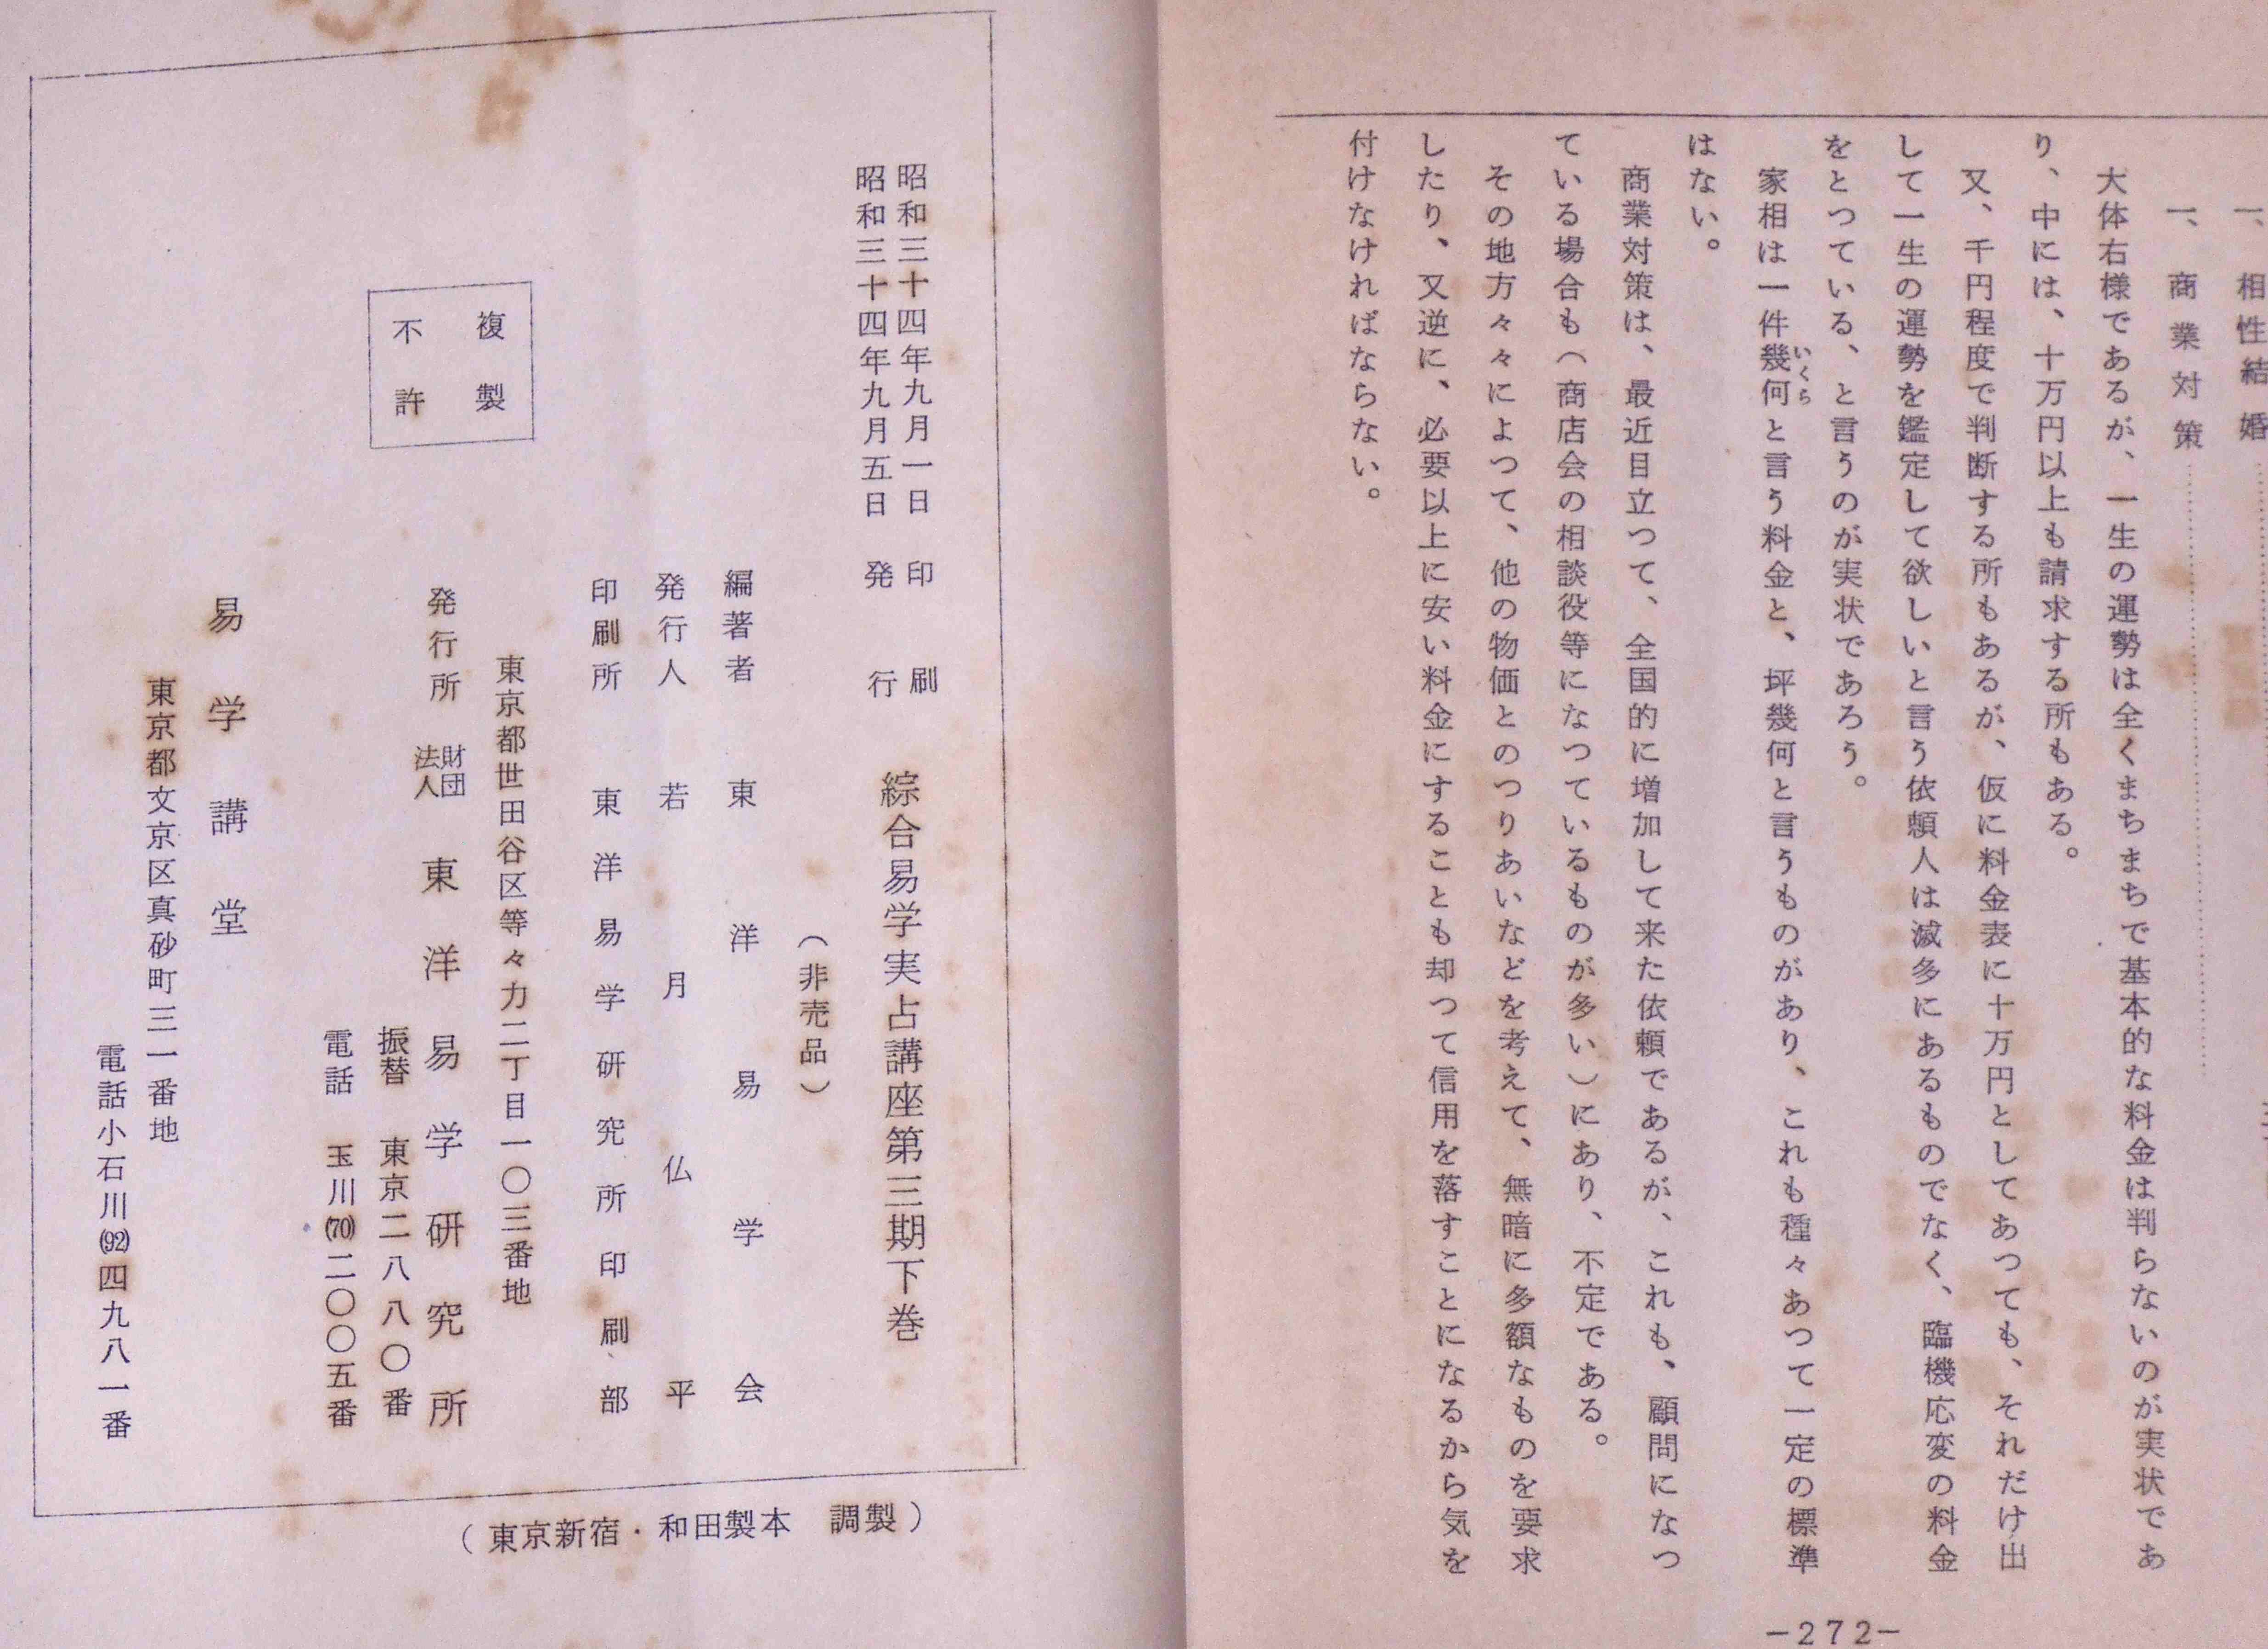 一、相性結婚
一、商業対策
大体右様であるが、一生の運勢は全くまちまちで基本的な料金は判らないのが実状であ
り、中には、十万円以上も請求する所もある。
又、千円程度で判断する所もあるが、仮に料金表に十万円としてあつても、それだけ出
して一生の運勢を鑑定して欲しいと言う依頼人は滅多にあるものでなく、臨機応変の料金
をとつている、と言うのが実状であろう。
家相は一件幾何いくらと言う料金と、坪幾何と言うものがあり、これも種々あつて一定の標準
はない。
商業対策は、最近目立つて、全国的に増加して来た依頼であるが、これも、顧問になつ
ている場合も（商店会の相談役等になつているものが多い）にあり、不定である。
その地方々々によつて、他の物価とのつりあいなどを考えて、無暗に多額なものを要求
したり、又逆に、必要以上に安い料金にすることも却つて信用を落すことになるから気を
付けなければならない。
－272－
昭和三十四年九月一日 印刷
昭和三十四年九月五日 発行
綜合易学実占講座第三期下巻
（非売品）
編著者 東洋易学会
発行人 若月仏平
印刷所 東洋易学研究所印刷部
複製
不許
東京都世田谷区等々力二丁目一〇三番地
発行所 財団法人 東洋易学研究所
振替 東京二八八〇番
電話 玉川(70)二〇〇五番
易学講堂
東京都文京区真砂町三一番地
電話小石川(92)四九八一番
（東京新宿・和田製本 調製）